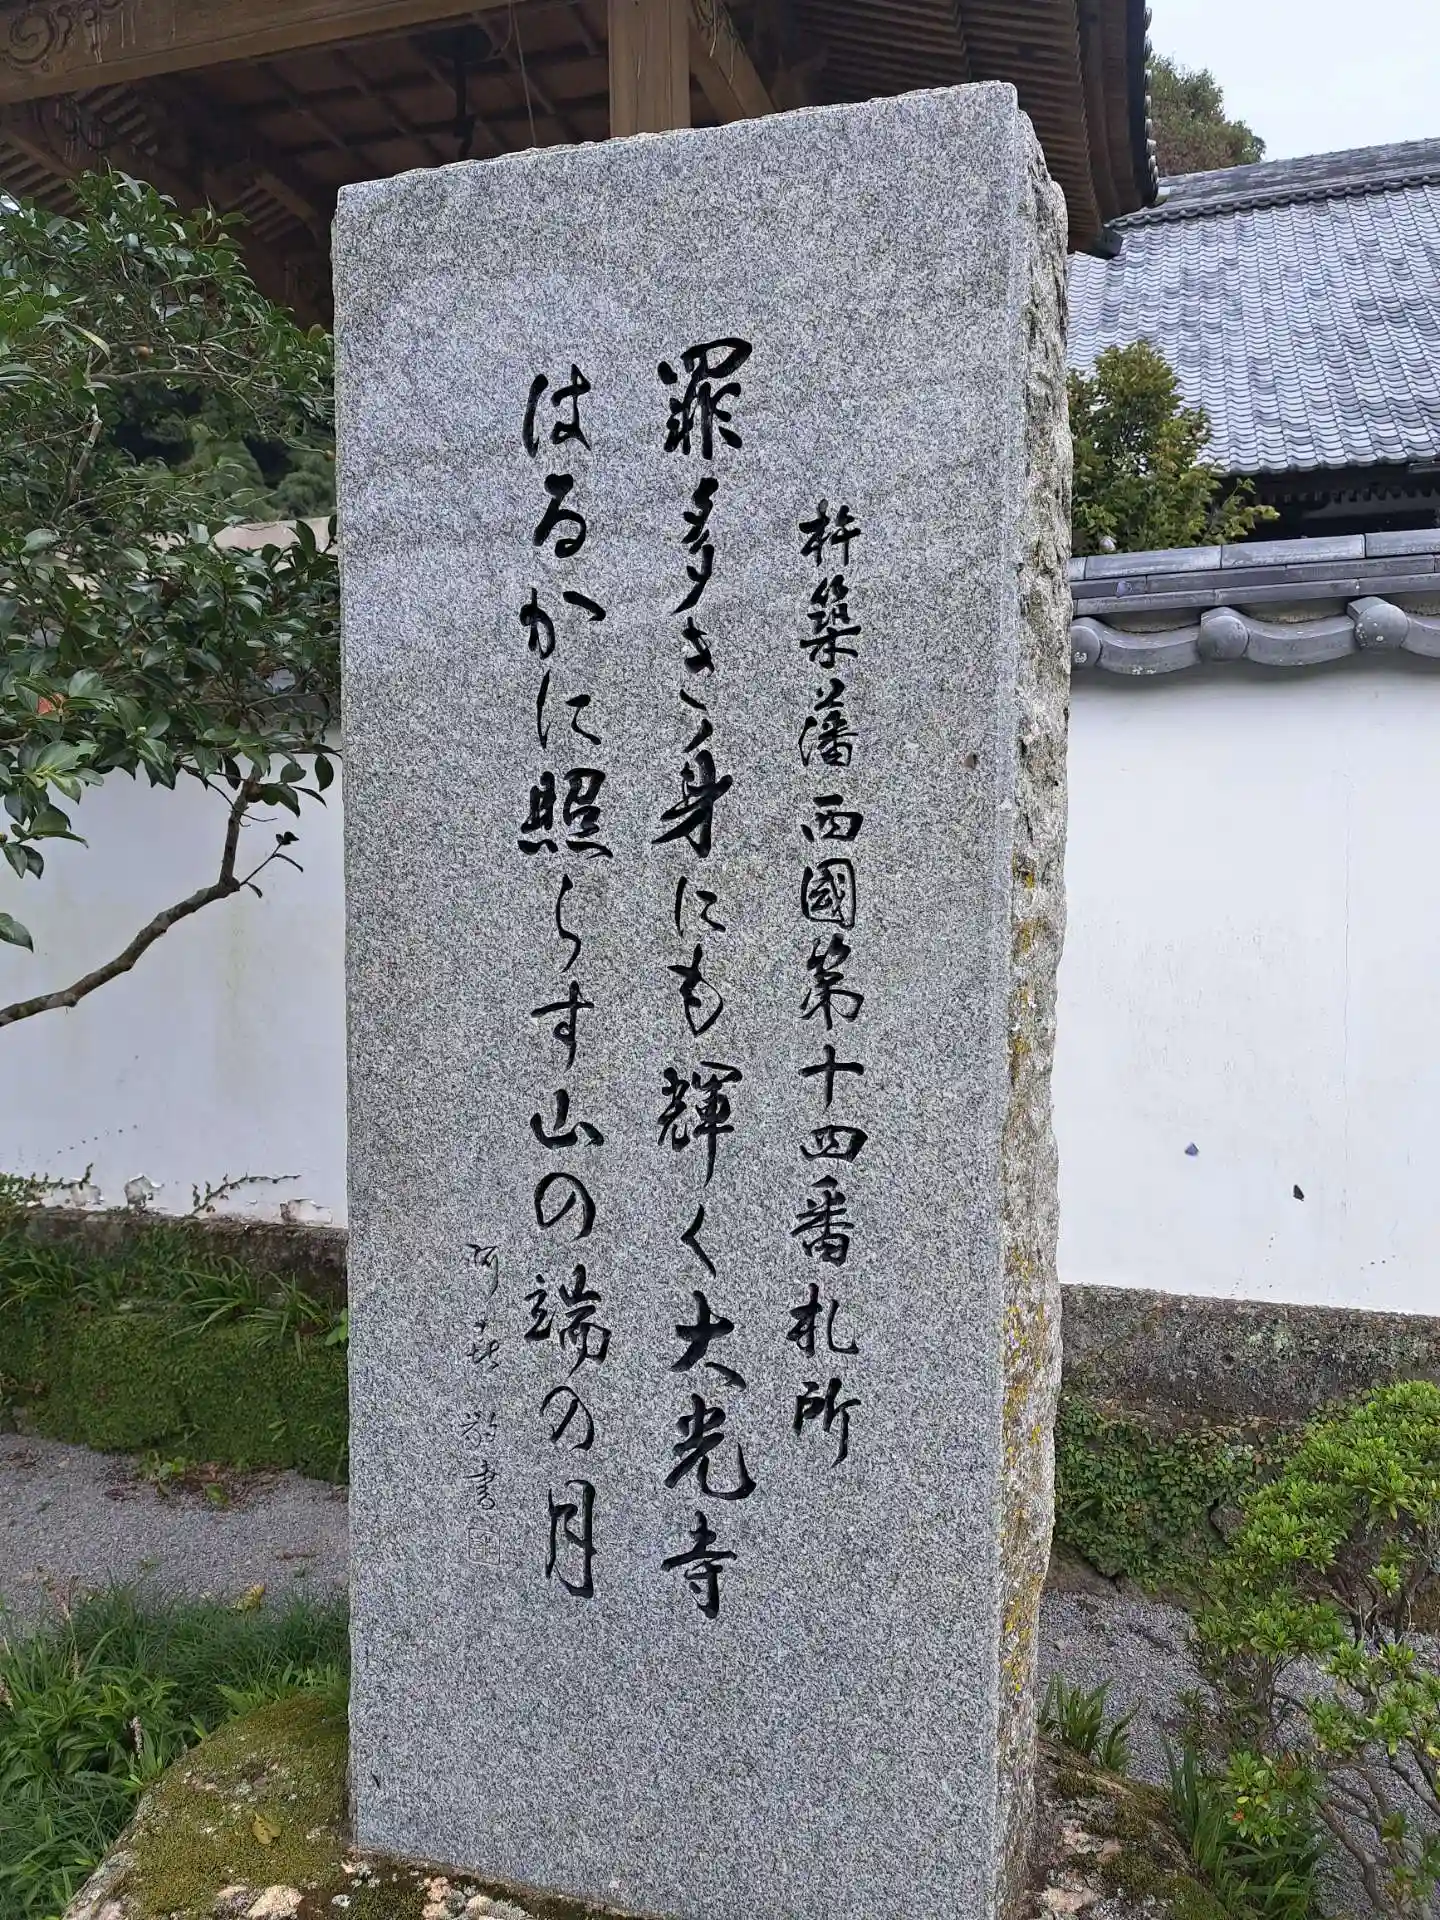 杵築藩西國第十四番札所
罪多き身にも輝く大光寺
はるかに照らす山の端の月
書